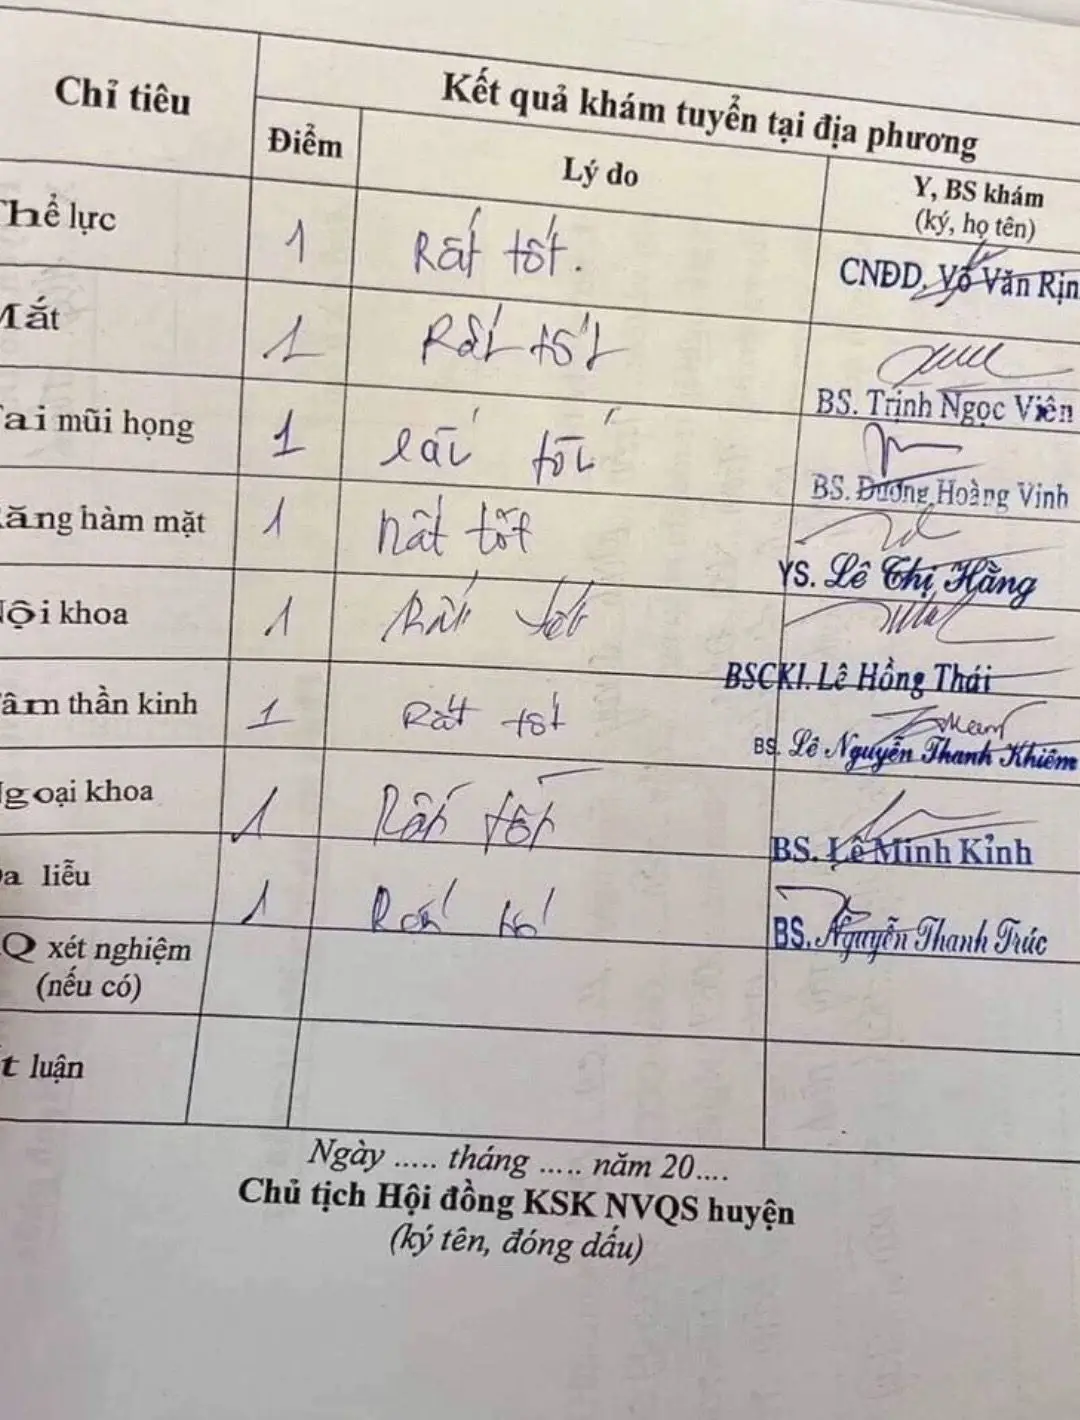 Chỉ tiêu
Kết quả khám tuyển tại địa phương
Điểm
Lý do
Y, BS khám
(ký, họ tên)
hể lực
1
Rất tốt.
CNĐD. Võ Văn Rịn
Mắt
1
Rất tốt
BS. Trịnh Ngọc Viên
ai mũi họng
1
rất tốt
BS. Dương Hoàng Vinh
ăng hàm mặt
1
rất tốt
YS. Lê Thị Hằng
Nội khoa
1
Rất tốt
BSCKI. Lê Hồng Thái
âm thần kinh
1
Rất tốt
BS. Lê Nguyễn Thanh Khiêm
Ngoại khoa
1
Rất tốt
BS. Lê Minh Kỉnh
a liễu
1
Rất tốt
BS. Nguyễn Thanh Trúc
Q xét nghiệm
(nếu có)
t luận
Ngày ..... tháng ..... năm 20....
Chủ tịch Hội đồng KSK NVQS huyện
(ký tên, đóng dấu)